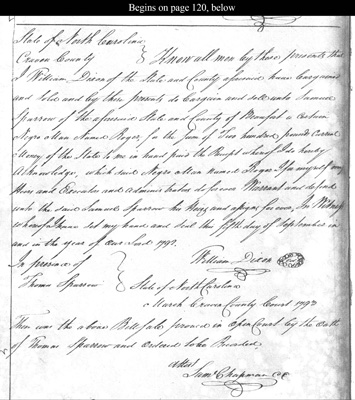 Begins on page 120, below
State of North Carolina
Craven County } Know all men by these presents that
I William Dixon of the State and County aforesaid have bargained
and sold and by these presents do bargain and sell unto Samuel
Sparrow of the aforesaid State and County of Beaufort a certain
Negro Man Named Roger for the Sum of Two hundred pounds Current
Money of the State to me in hand paid the Receipt whereof I do hereby
Acknowledge, which said Negro Man named Roger I for myself my
Heirs and Executors and administrators do forever Warrant and defend
unto the said Samuel Sparrow his Heirs and assigns forever, In Witness
whereof I have set my hand and seal the fifth day of September in
and in the year of our Lord 1792.
In presence of } William Dixon
Thomas Sparrow
State of North Carolina
March Craven County Court 1793
Then was the above Bill Sale proved in Open Court by the Oath
of Thomas Sparrow and Ordered to be Recorded.
Attest
Saml Chapman CC